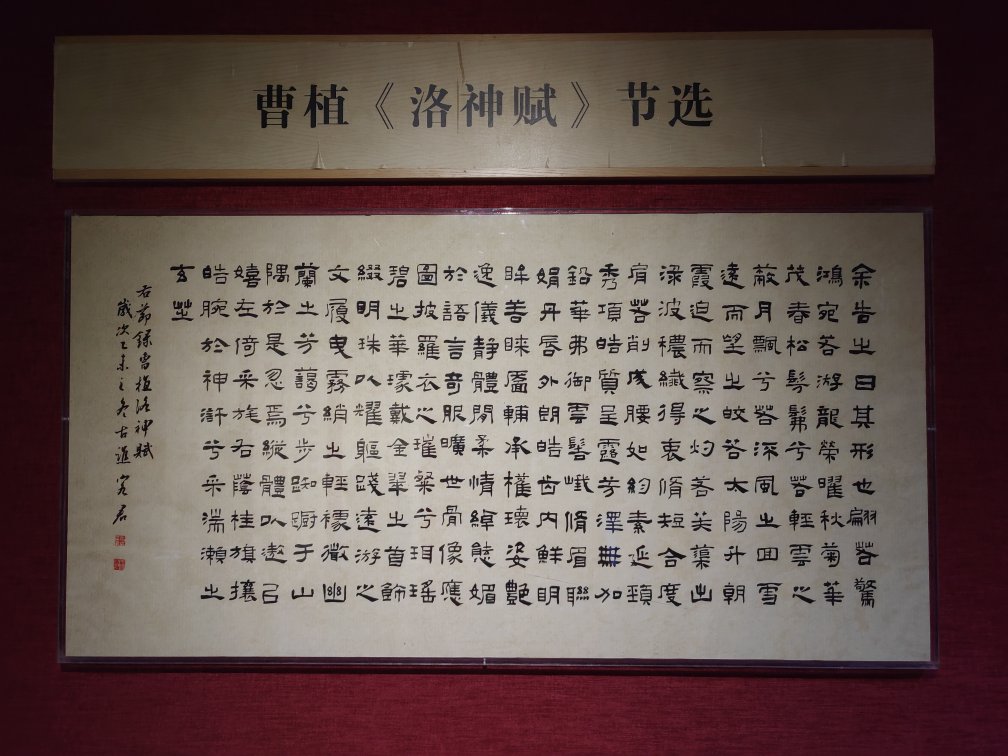 曹植《洛神赋》节选
余告之曰其形也翩若驚
鴻宛若游龍榮曜秋菊華
茂春松髣髴兮若輕雲之
蔽月飄兮若流風之回雪
遠而望之皎若太陽升朝
霞迫而察之灼若芙蕖出
淥波穠纖得衷脩短合度
肩若削成腰如約素延頸
秀項皓質呈露芳澤無加
鉛華弗御雲髻峨脩眉聯
娟丹唇外朗皓齒内鮮明
眸善睞靨輔承權瓌姿艷
逸儀靜體閑柔情綽態媚
於語言奇服曠世骨像應
圖披羅衣之璀粲兮珥瑤
碧之華璩戴金翠之首飾
綴明珠以耀軀踐遠游之
文履曳霧綃之輕裾微幽
蘭之芳藹兮步踟躕于山
隅於是忽焉縱體以遨以
嬉左倚采旄右蔭桂旗攘
皓腕於神滸兮采湍瀨之
玄芝
右節録曹植洛神賦
歲次乙未之冬古